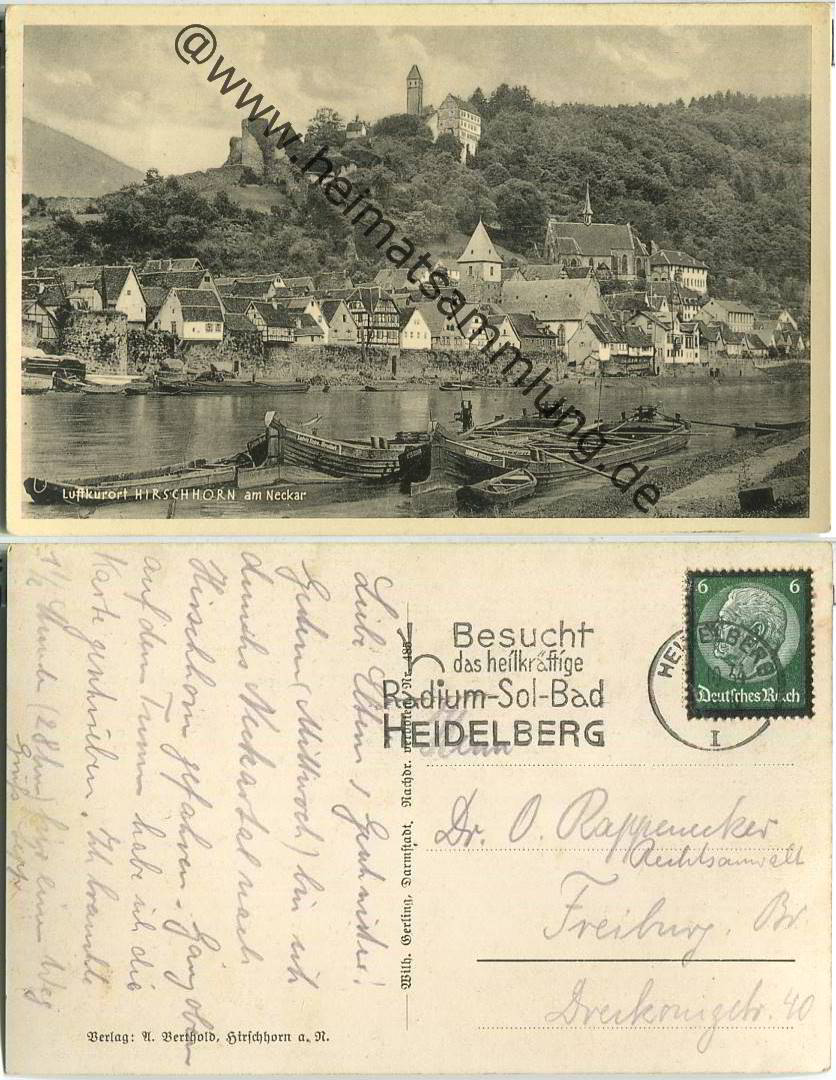 @www.heimatsammlung.de
Luftkurort HIRSCHHORN am Neckar
Besucht
das heilkräftige
Radium-Sol-Bad
HEIDELBERG
HEIDELBERG
I
6 6
Deutsches Reich
Herrn
Dr. O. Rappenecker
Rechtsanwalt
Freiburg. Br.
Dreikönigstr. 40
Wilh. Gerling, Darmstadt, Nachdr. verboten
Liebe Eltern u Geschwister!
Gestern (Mittwoch) bin ich
durchs Neckartal nach
Hirschhorn gefahren. Ganz oben
auf dem Turm habe ich die
Karte geschrieben. Ich brauchte
1½ Stunde (28 km) für einen Weg
Gruß
Verlag: A. Berthold, Hirschhorn a. N.